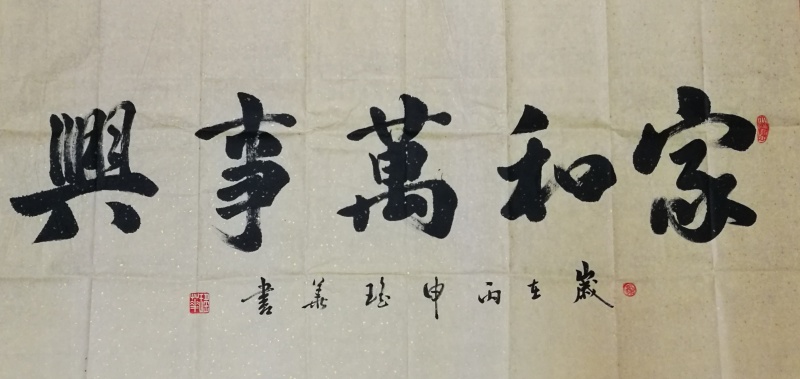 家和萬事興
歲在丙申瑤華書